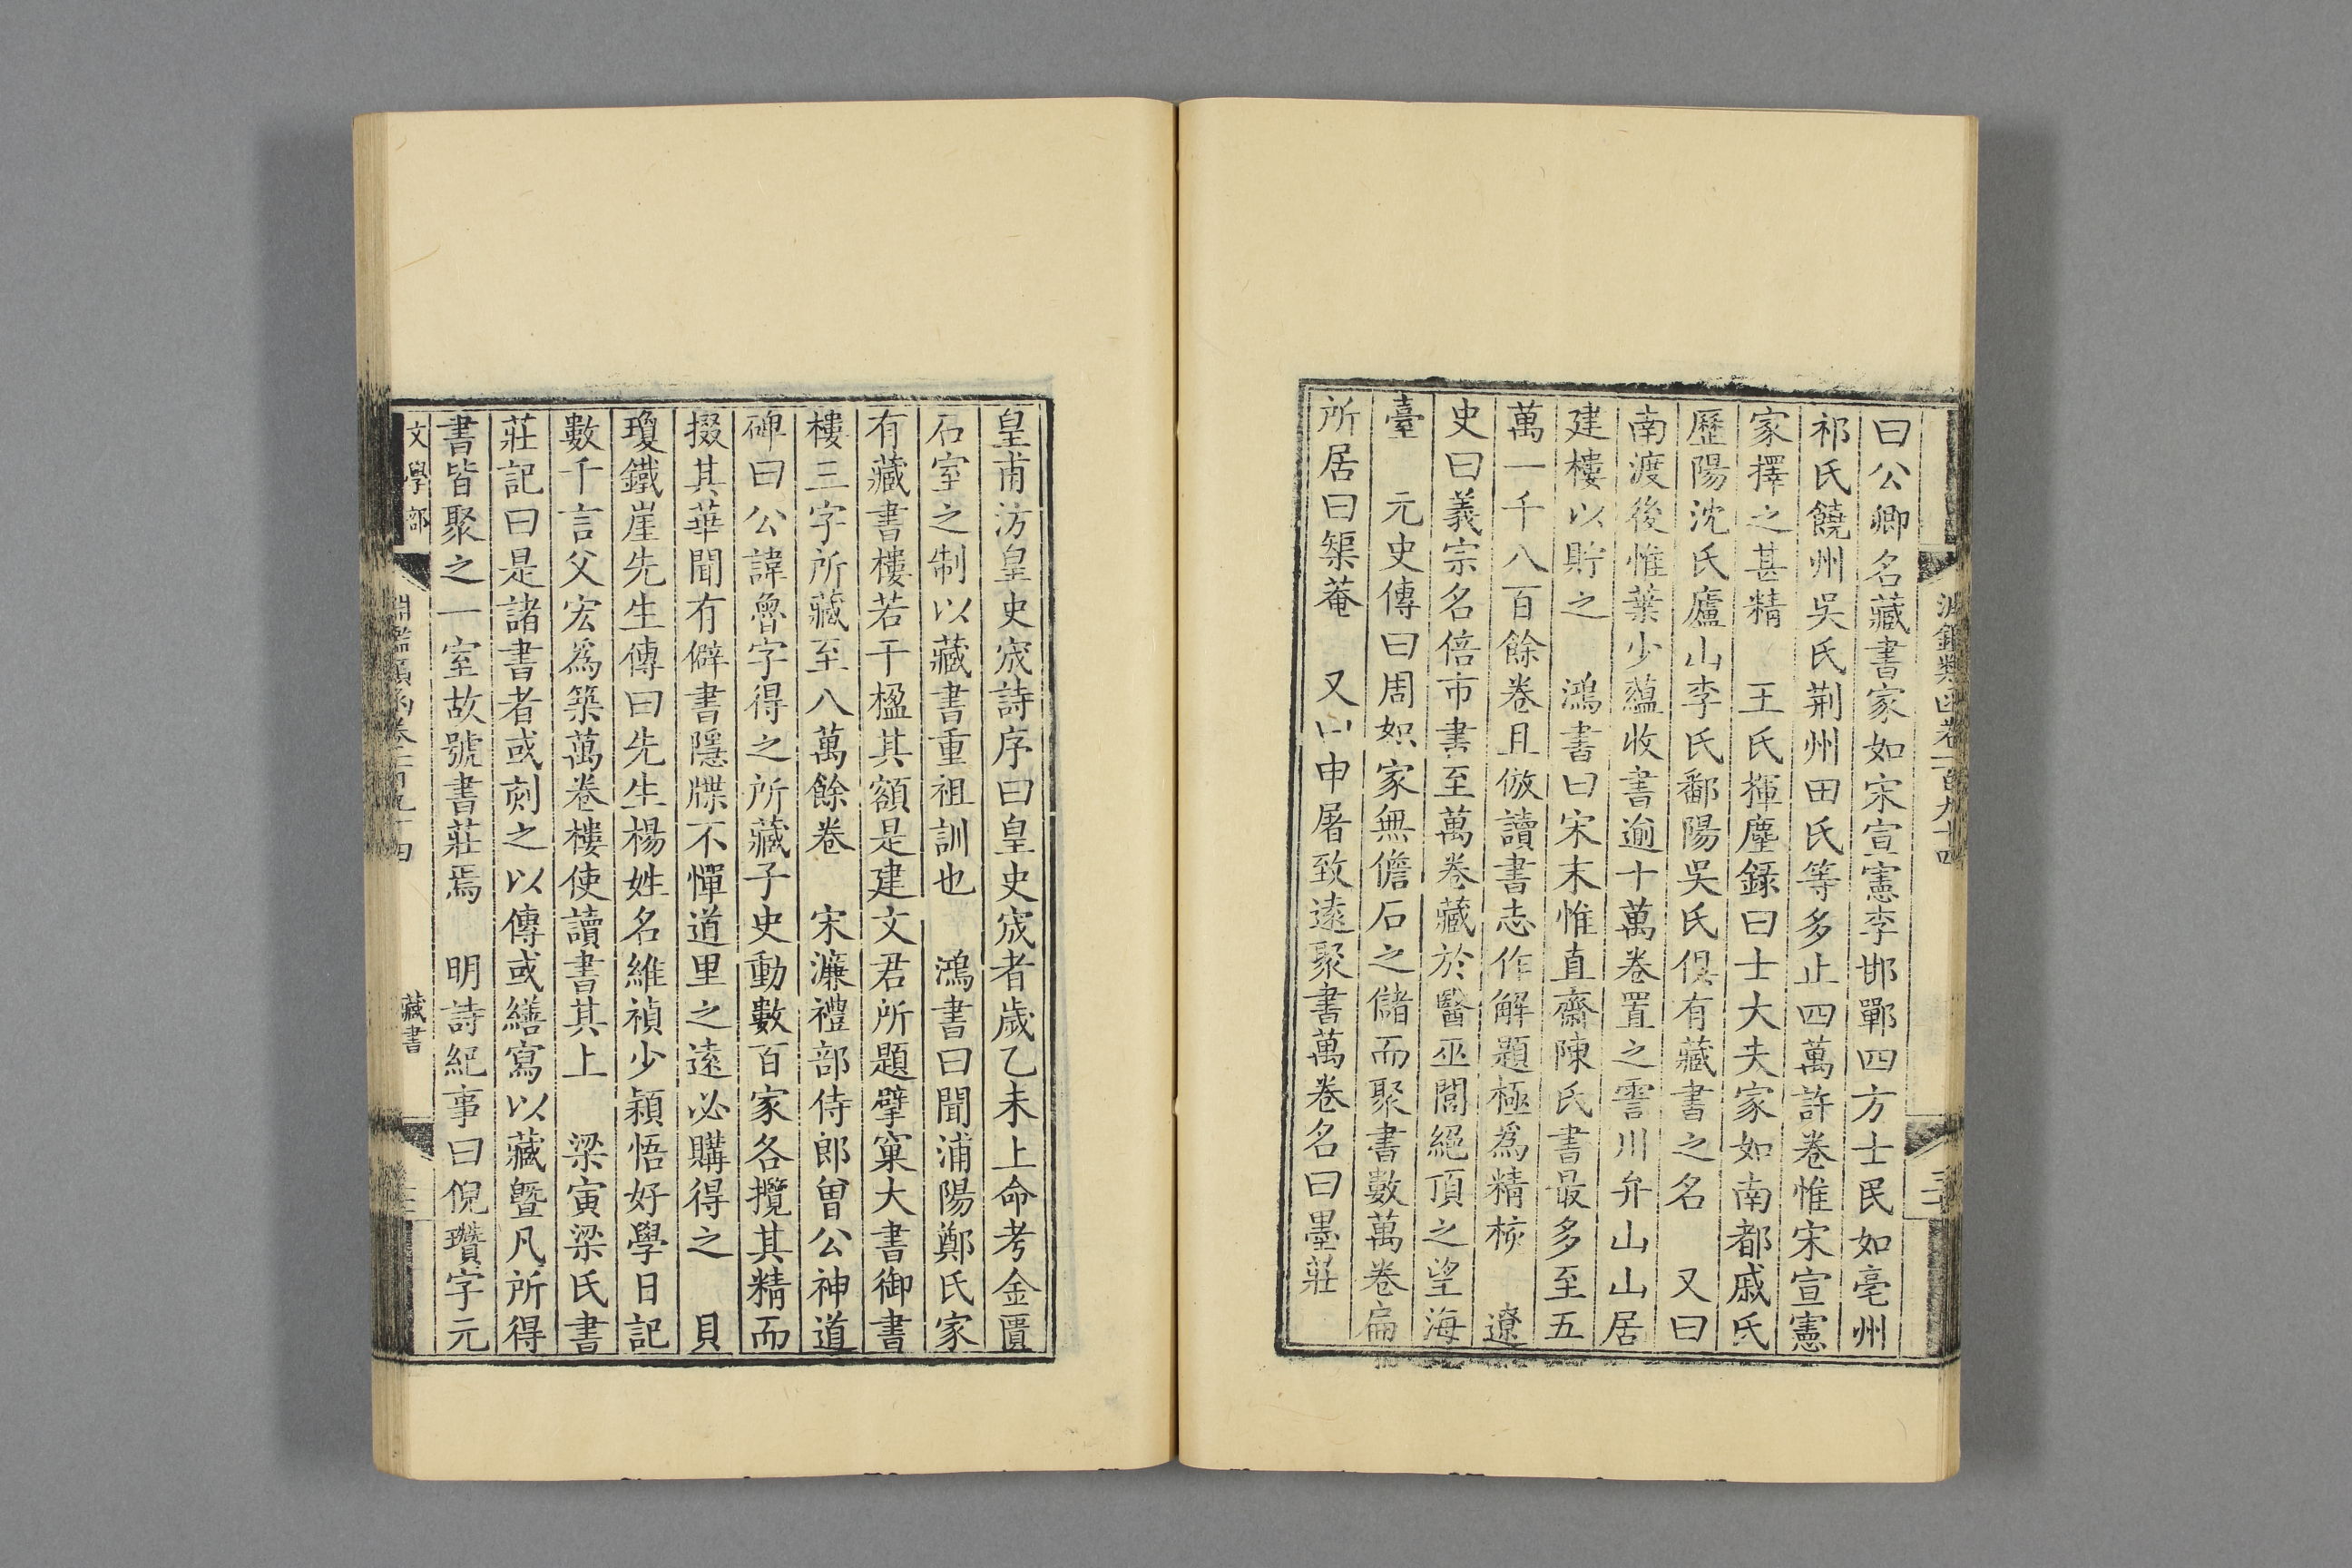 曰公卿名藏書家如宋宣憲李邯鄲四方士民如亳州
祁氏饒州吳氏荆州田氏等多止四萬許卷惟宋宣憲
家擇之甚精　王氏揮麈錄曰士大夫家如南都戚氏
歷陽沈氏廬山李氏鄱陽吳氏俱有藏書之名　又曰
南渡後惟葉少蘊收書逾十萬卷置之霅川弁山山居
建樓以貯之　鴻書曰宋末惟直齋陳氏書最多至五
萬一千八百餘卷且倣讀書志作解題極為精核　遼
史曰義宗名倍市書至萬卷藏於醫巫閭絕頂之望海
臺　元史傳曰周如家無儋石之儲而聚書數萬卷扁
所居曰榘菴　又曰申屠致遠聚書萬卷名曰墨莊
皇甫汸皇史宬詩序曰皇史宬者歲乙未上命考金匱
石室之制以藏書重祖訓也　鴻書曰聞浦陽鄭氏家
有藏書樓若干楹其額是建文君所題擘窠大書御書
樓三字所藏至八萬餘卷　宋濂禮部侍郎曾公神道
碑曰公諱魯字得之所藏子史動數百家各攬其精而
掇其華聞有僻書隱牒不憚道里之遠必購得之　貝
瓊鐵崖先生傳曰先生楊姓名維禎少穎悟好學日記
數千言父宏為築萬卷樓使讀書其上　梁寅梁氏書
莊記曰是諸書者或刻之以傳或繕寫以藏曁凡所得
書皆聚之一室故號書莊焉　明詩紀事曰倪瓚字元
文學部
淵鑑類函卷一百九十四
藏書